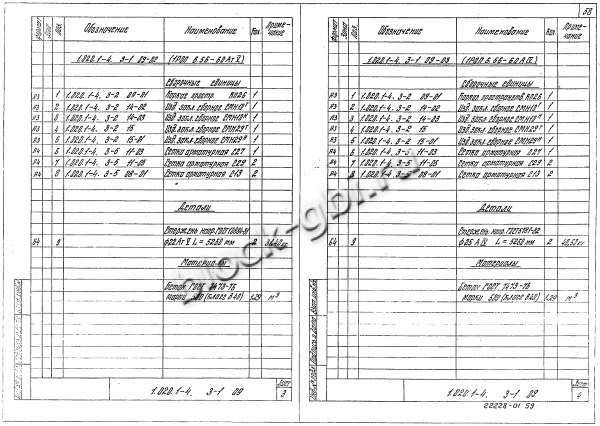 58
Формат Зона Поз. Обозначение Наименование Кол. Приме-чание
1.020.1-4. 3-1 09-02 (1РОП 6.56-60 Ат V)
Сборочные единицы
А3 1 1.020.1-4. 3-2 09-01 Каркас простр. КП26 1
А3 2 1.020.1-4. 3-2 14-02 Изд. закл. сборное 1
А3 3 1.020.1-4. 3-2 14-03 Изд. закл. сборное 1
А3 4 1.020.1-4. 3-2 15 Изд. закл. сборное 1
А3 5 1.020.1-4. 3-2 15-01 Изд. закл. сборное 1
А4 6 1.020.1-4. 3-5 11-03 Сетка арматурная С27 1
А4 7 1.020.1-4. 3-5 11-05 Сетка арматурная С29 2
А4 8 1.020.1-4. 3-5 08-01 Сетка арматурная С13 2
Детали
Стержень напр. ГОСТ
Б4 9 L = 5250 мм 2
Материалы
Бетон ГОСТ 7473-76
марки (класс В40) 1.29 м³
1.020.1-4. 3-1 09
Лист
3
Формат Зона Поз. Обозначение Наименование Кол. Приме-чание
1.020.1-4. 3-1 09-03 (1РОП 6.56-60 А IV)
Сборочные единицы
А3 1 1.020.1-4. 3-2 09-01 Каркас пространств. КП26 1
А3 2 1.020.1-4. 3-2 14-02 Изд. закл. сборное 1
А3 3 1.020.1-4. 3-2 14-03 Изд. закл. сборное 1
А3 4 1.020.1-4. 3-2 15 Изд. закл. сборное 1
А3 5 1.020.1-4. 3-2 15-01 Изд. закл. сборное 1
А4 6 1.020.1-4. 3-5 11-03 Сетка арматурная С27 1
А4 7 1.020.1-4. 3-5 11-05 Сетка арматурная С29 2
А4 8 1.020.1-4. 3-5 08-01 Сетка арматурная С13 2
Детали
Стержень напр. ГОСТ 5781-82
Б4 9 ф25 А IV L = 5250 мм 2
Материалы
Бетон ГОСТ 7473-76
марки (класс В40) 1.29 м³
1.020.1-4. 3-1 09
Лист
4
22228-01 59
block-gbi.ru